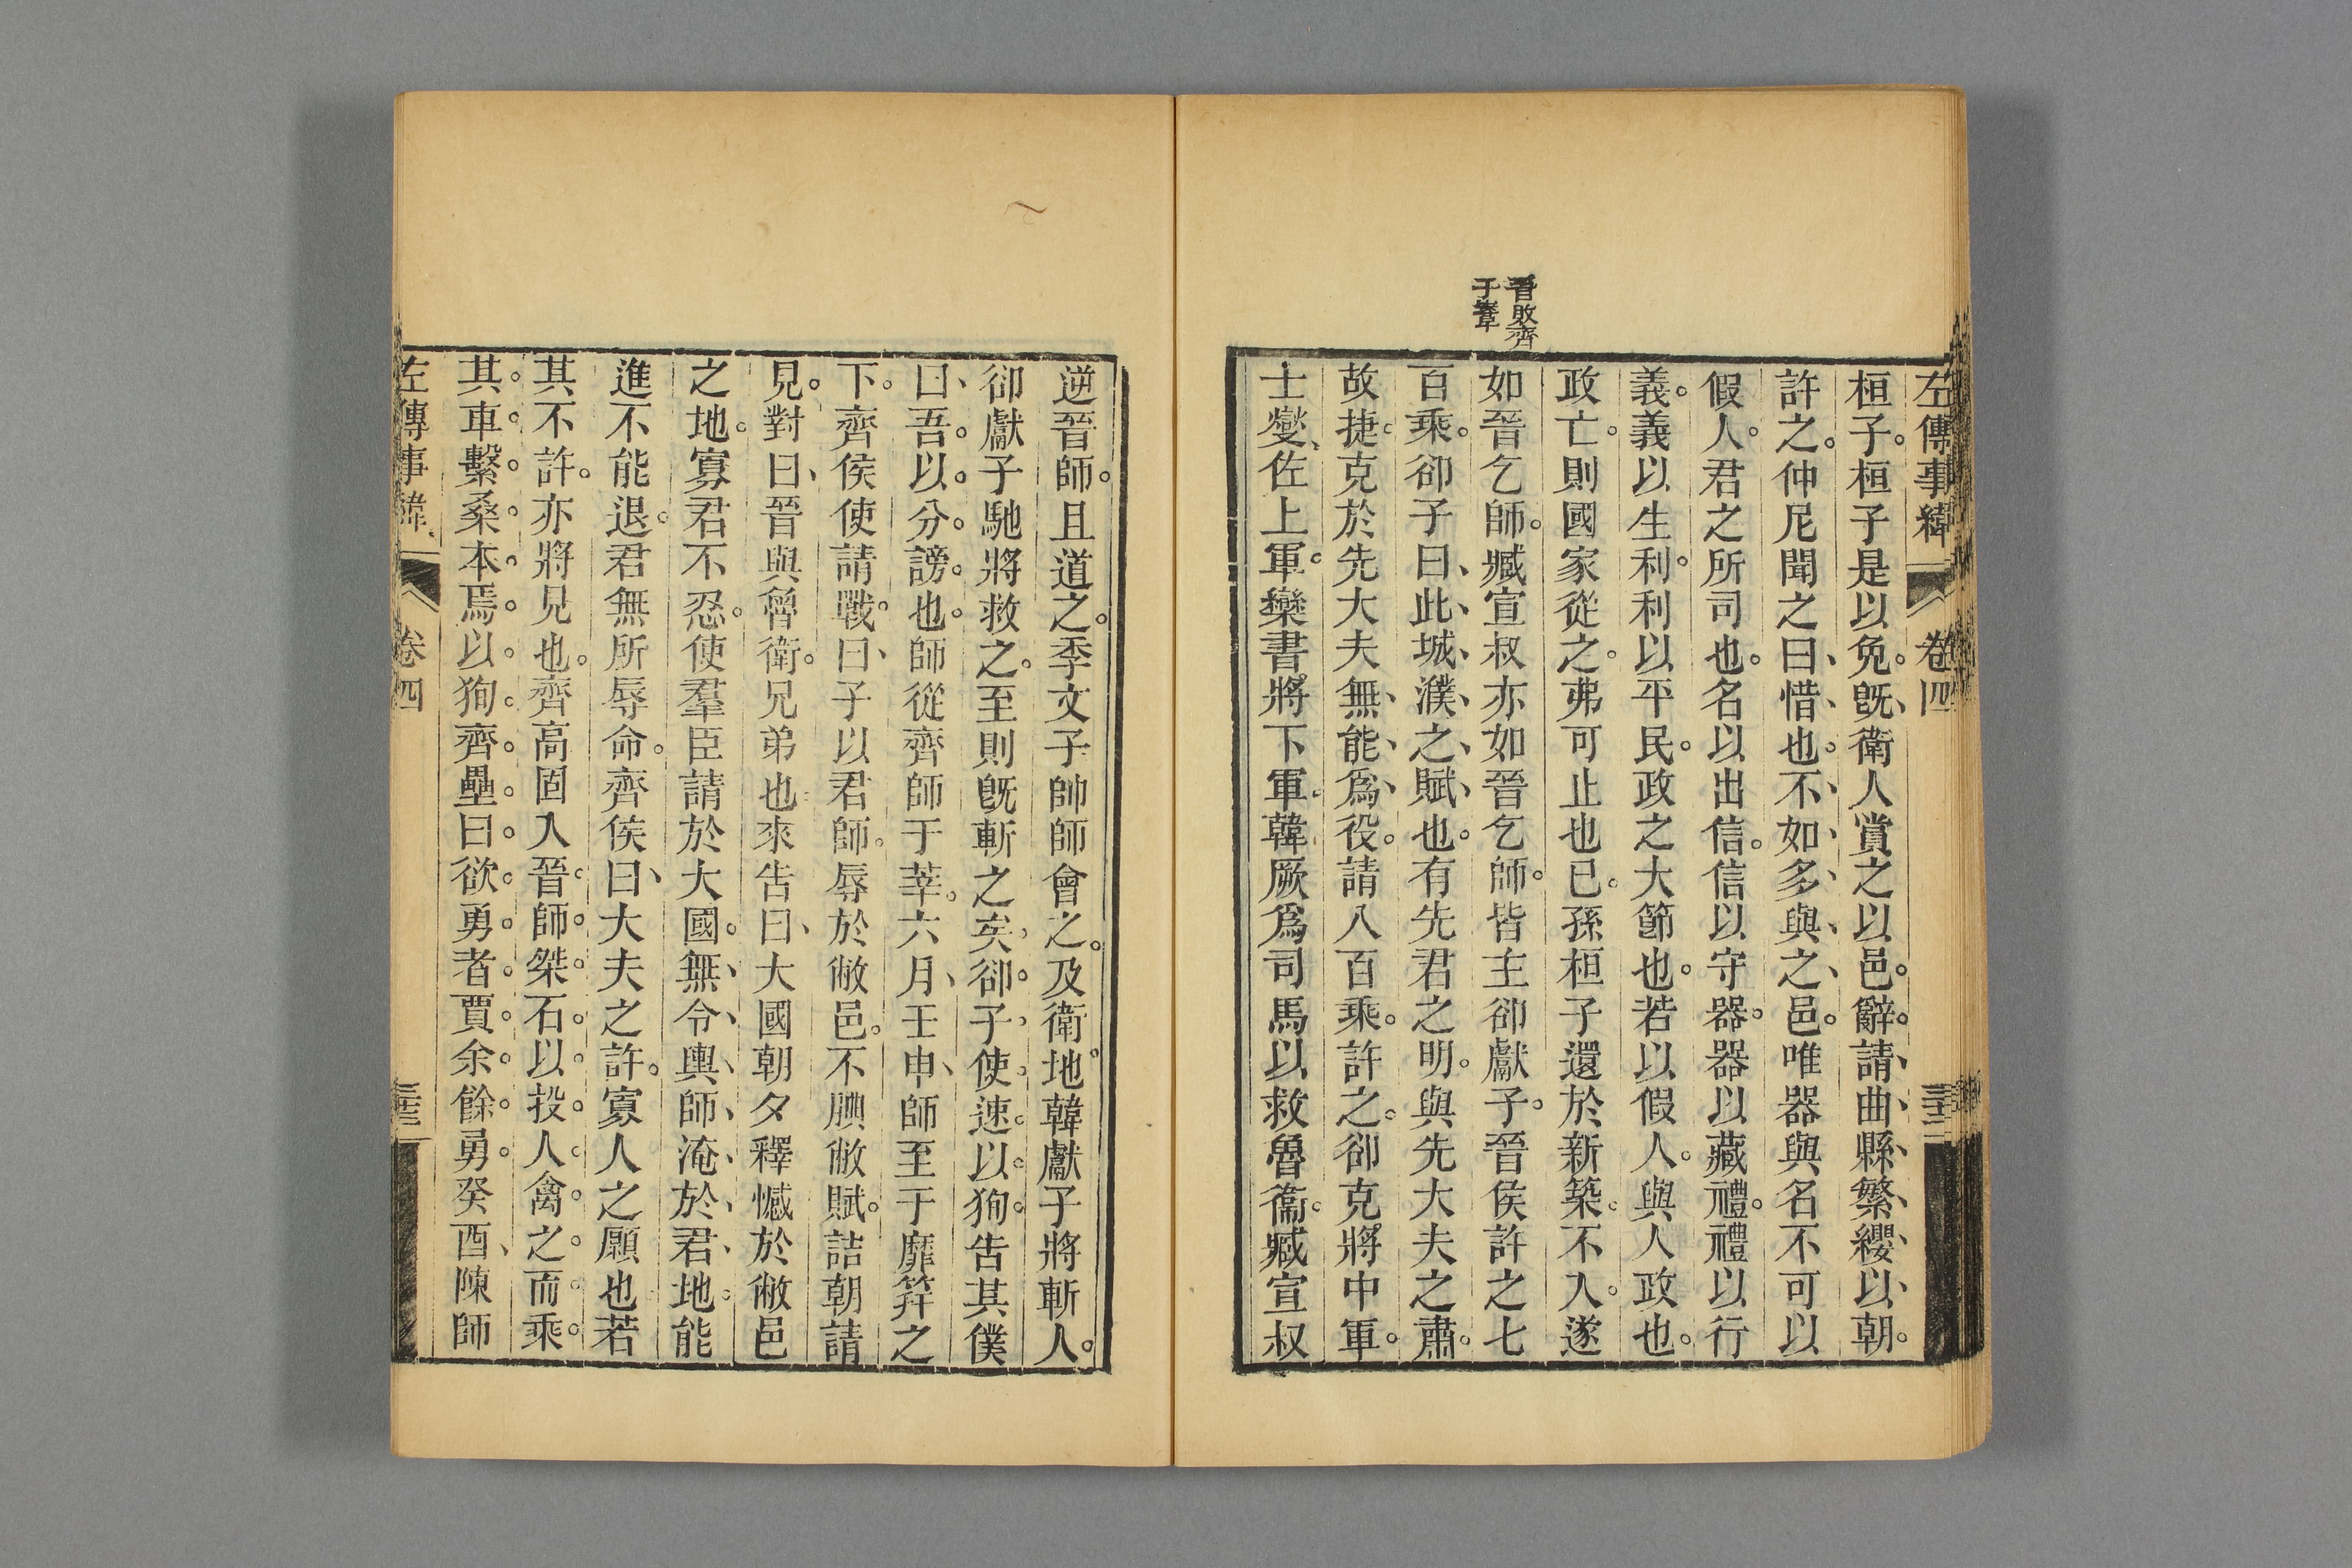 左傳事緯
卷四
桓子。桓子是以免。旣、衛人賞之以邑。辭。請、曲、縣、繁、纓、以、朝。
許之。仲尼聞之曰、惜、也。不、如、多、與、之、邑。唯器與名不可以
假人。君之所司也。名以出信。信以守器。器以藏禮。禮以行
義。義以生利。利以平民。政之大節也。若以假人。與人政也。
政亡。則國家從之。弗可止也已。孫桓子還於新築。不入。遂
晉敗齊
于鞌
如晉乞師。臧宣叔亦如晉乞師。皆主郤獻子。晉侯許之七
百乘。郤子曰、此、城、濮、之、賦、也。有先君之明。與先大夫之肅。
故捷。克於先大夫無、能、爲、役。請八百乘。許之。郤克將中軍。
士燮、佐上軍。欒書將下軍。韓厥爲司馬以救魯衞。臧宣叔
逆晉師。且道之。季文子帥師會之。及衛地。韓獻子將斬人。
郤獻子馳將救之。至則旣斬之矣。郤。子。使。速。以。狥。告其僕
曰、吾。以。分。謗。也。師從齊師于莘。六月、壬申、師至于靡筓之
下。齊侯使請戰。曰、子以君師。辱於敝邑。不腆敝賦。詰朝請
見。對曰、晉與魯衛。兄弟也。來告曰、大國朝夕釋憾於敝邑
之地。寡君不忍。使羣臣請於大國。無、令、輿、師、淹、於、君、地。能
進不能退。君無所辱命。齊侯曰、大夫之許。寡人之願也。若
其不許。亦將見也。齊高固入晉。師。桀。石。以。投。人。禽。之。而。乘。
其。車。繫。桑。本。焉。以。狥。齊。壘。曰。欲。勇。者。賈。余。餘。勇。癸酉、陳師
左傳事緯
卷四